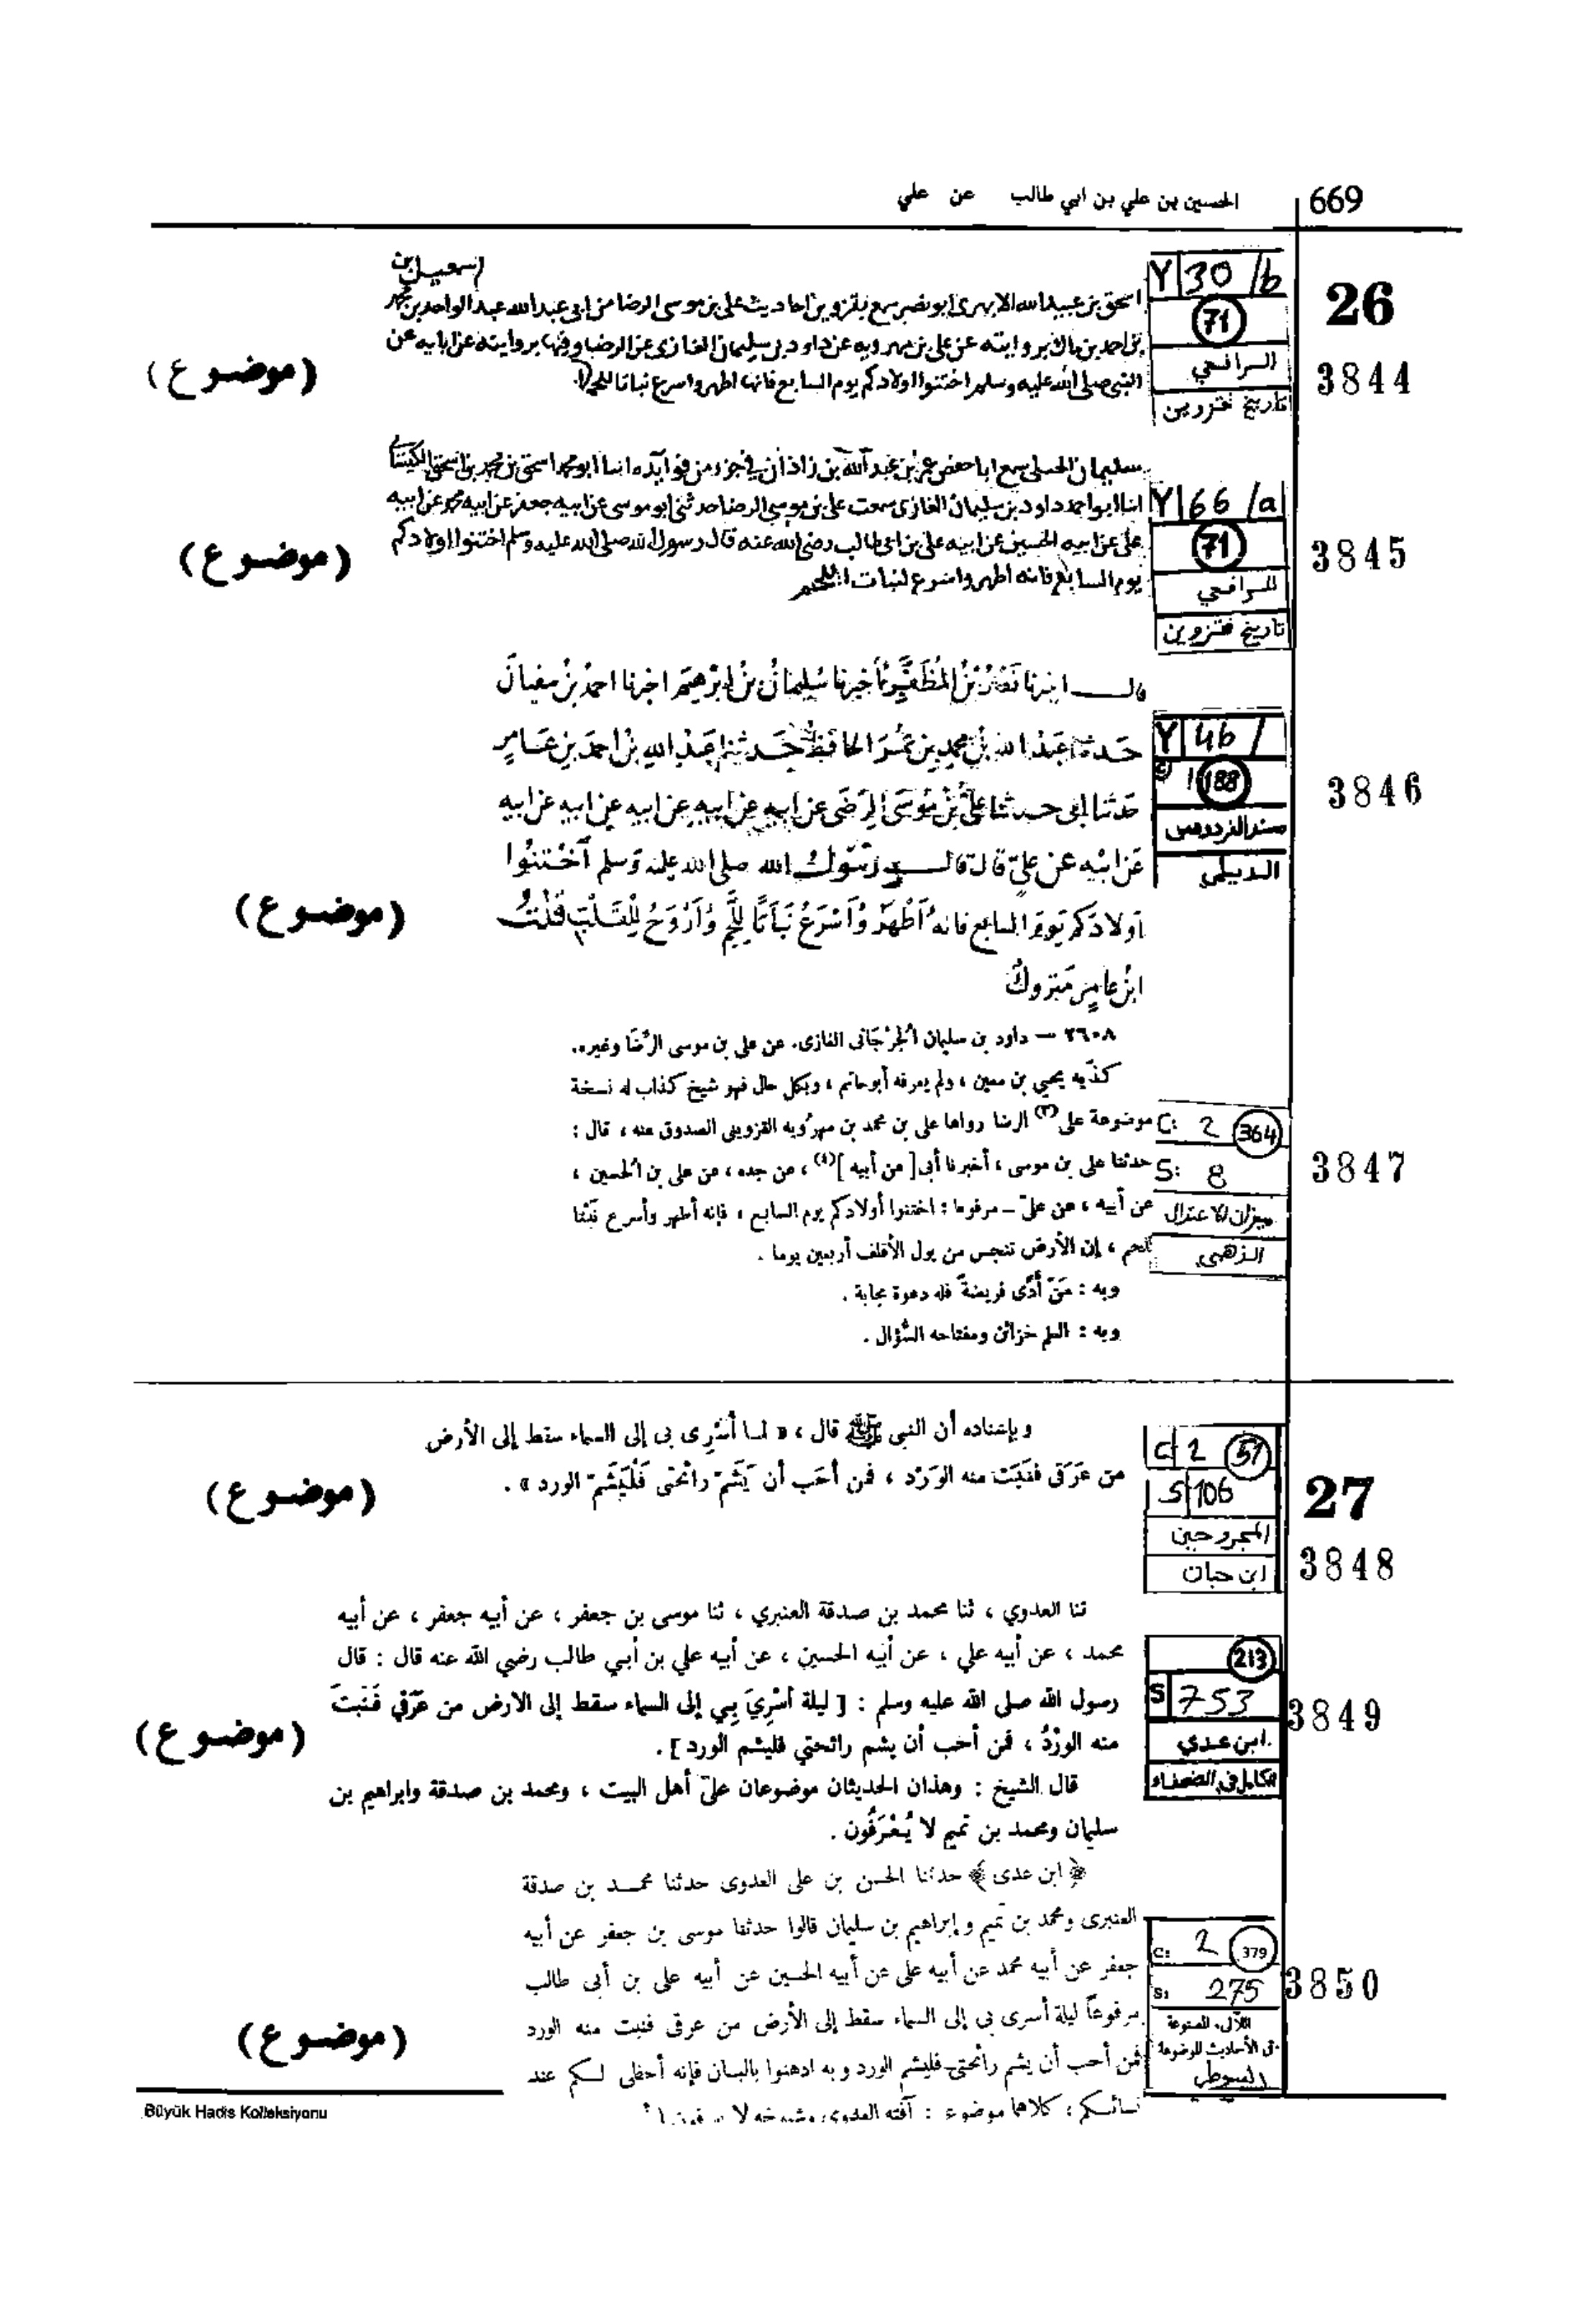 669
الحسين بن علي بن ابي طالب عن علي
26
Y 30 /b
71
الرافعي
تاريخ قزوين
3844
اسمعيل بن
اسحق بن عبيد الله الابهري ابو نصر سمع بقزوين احاديث علي بن موسى الرضا من ابي عبد الله عبد الواحد بن محمد
بن احمد بن ماك بروايته عن علي بن مهرويه عن داود بن سليمان الغازي عن الرضا وفيها بروايته عن ابايه عن
النبي صلى الله عليه وسلم اختنوا اولادكم يوم السابع فانها اطهر واسرع نباتا للحم
(موضوع)
Y 66 /a
71
الرافعي
تاريخ قزوين
3845
سليمان الحسلي سمع ابا حفص عمر بن عبد الله بن زاذان في جزء من فوايده انبا ابو محمد اسحق بن محمد بن اسحق
انبا ابو احمد داود بن سليمان الغازي سمعت علي بن موسى الرضا حدثني ابو موسى عن ابيه جعفر عن ابيه محمد عن ابيه
علي عن ابيه الحسين عن ابيه علي بن ابي طالب رضي الله عنه قال رسول الله صلى الله عليه وسلم اختنوا اولادكم
يوم السابع فانه اطهر واسرع لنبات اللحم
(موضوع)
Y 46 /
188
مسند الفردوس
الديلمى
3846
قال اخبرنا نَصْرُ بْنُ المُظَفَّرِ أخبرنا سُلَيمانُ بنُ ابرهيم اخبرنا احمد بن
حَدثنا عَبْدُ الله بْنُ محمدِ بنِ عُمَرَ الحافظُ حَدثنا عَبدُ اللهِ بْنُ احمدَ بنِ عَامِرٍ
حَدثنا ابى حدثنا علىُّ بْنُ مُوسَى الرِضَى عن ابيهِ عن ابيهِ عن ابيه عن ابيه عن ابيه
عَن ابيْهِ عن علىّ قال قال رسُولُ الله صلى الله عليه وسلم اخْتنُوا
اولادَكم يَومَ السابع فانهُ أَطْهَرُ وَأَسْرَعُ نَبَاتًا لِلَّحْمِ وَأَرْوَحُ لِلْقَلْبِ قُلْتُ
ابْن عامِرٍ مَتروكٌ
(موضوع)
٢٦٠٨ — داود بن سليمان الجُرْجَانى الغازى. عن على بن موسى الرِّضَا وغيره.
كذّبه يحيى بن معين ، ولم يعرفه أبو حاتم ، وبكل حال فهو شيخ كذاب له نسخة
موضوعة على(٣) الرضا رواها على بن محمد بن مهرُويه القزوينى الصدوق عنه ، قال :
حدثنا على بن موسى ، أخبرنا أبى [ عن أبيه ](٤) ، عن جده ، عن على بن الحسين ،
عن أبيه ، عن علىّ – مرفوعا : اختنوا أولادكم يوم السابع ، فإنه أطهر وأسرع نَبْتًا
للحم ، إن الأرض تنجس من بول الأقلف أربعين يوما .
وبه : مَنْ أَدَّى فريضةً فله دعوة مجابة .
وبه : العلم خزائن ومفتاحه السُّؤال .
C: 2 364
S: 8
ميزان الاعتدال
الذهبى
3847
27
C 2 51
S 106
المجروحين
ابن حبان
3848
وبإسناده أن النبى ﷺ قال ، « لما أُسْرِى بى إلى السماء سقط إلى الأرض
من عَرَقى فنَبَت منه الوَرْد ، فمن أحَب أن يَشَمّ رائحتى فَلْيَشَمّ الورد » .
(موضوع)
213
S 753
ابن عدي
الكامل فى الضعفاء
3849
ثنا العدوي ، ثنا محمد بن صدقة العنبري ، ثنا موسى بن جعفر ، عن أبيه جعفر ، عن أبيه
محمد ، عن أبيه علي ، عن أبيه الحسين ، عن أبيه علي بن أبي طالب رضي الله عنه قال : قال
رسول الله صلى الله عليه وسلم : [ ليلة أُسْرِيَ بِي إلى السماء سقط إلى الارض من عَرَقي فَنَبتَ
منه الورْدُ ، فمن أحب أن يشم رائحتي فليشم الورد ] .
قال الشيخ : وهذان الحديثان موضوعان علىٰ أهل البيت ، ومحمد بن صدقة وابراهيم بن
سليمان ومحمد بن تميم لا يُعْرَفُون .
(موضوع)
C: 2 379
S: 275
اللآلىء المصنوعة
فى الأحاديث الموضوعة
السيوطى
3850
﴿ ابن عدى ﴾ حدثنا الحسن بن على العدوى حدثنا محمد بن صدقة
العنبرى ومحمد بن تميم وإبراهيم بن سليمان قالوا حدثنا موسى بن جعفر عن أبيه
جعفر عن أبيه محمد عن أبيه على عن أبيه الحسين عن أبيه على بن أبى طالب
مرفوعاً ليلة أسرى بى إلى السماء سقط إلى الأرض من عرقى فنبت منه الورد
فمن أحب أن يشم رائحتى فليشم الورد وبه ادهنوا بالبان فإنه أحظى لكم عند
نسائكم ، كلاهما موضوع : آفته العدوى وشيوخه لا يعرفون
(موضوع)
Büyük Hadis Kolleksiyonu